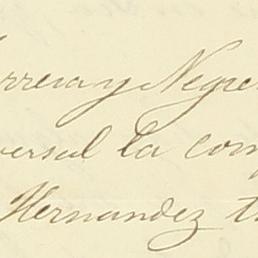 rrea y Negre
versal la com
Hernandez t